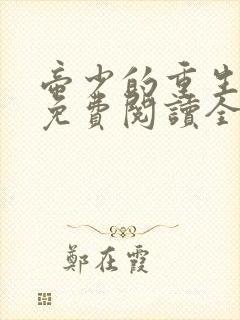 帝少的重生
免費閱讀全
鄭在霞